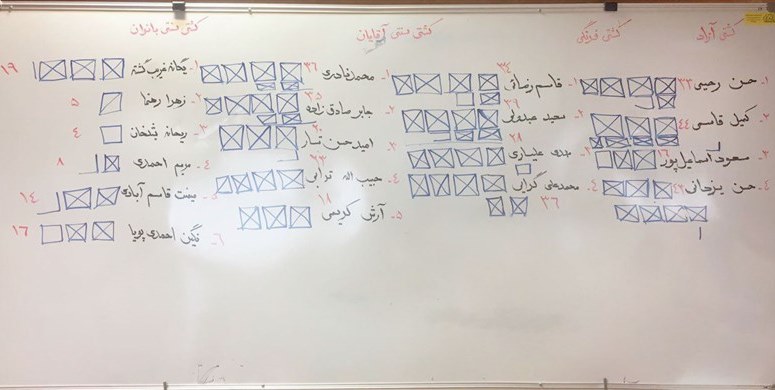 کشتی آزاد
۱- حسن رحیمی ۳۳
۲- کمیل قاسمی ۴۴
۳- مسعود اسماعیل پور ۱۶
۴- حسن یزدانی ۴۲
کشتی فرنگی
۱- قاسم رضائی ۳۴
۲- سعید عبدولی ۳۹
۳- مهدی علیاری ۲۸
۴- محمدعلی گرائی ۳۶
کشتی سنتی آقایان
۱- محمد نادری ۳۶
۲- جابر صادق زاده ۳۵
۳- امید حسن تبار ۲۰
۴- حبیب الله ترابی ۲۳
۵- آرش کریس ۱۸
کشتی سنتی بانوان
۱- یگانه غریب گشته ۱۹
۲- زهرا رهنما ۵
۳- ریحانه ۴
۴- مریم احمدی ۸
۵- بهشت قاسم آبادی ۱۴
۶- نگین احمدی پویا ۱۶